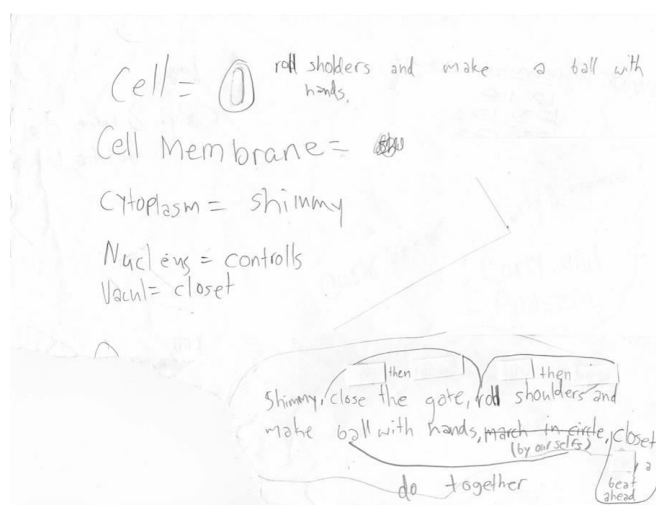 Cell = roll sholders and make a ball with
hands.
Cell Membrane =
Cytoplasm = shimmy
Nucleus = controlls
Vacul = closet
then then
Shimmy, close the gate, roll shoulders and
make ball with hands, march in circle, closet
(by our selfs) a
beat
do together ahead